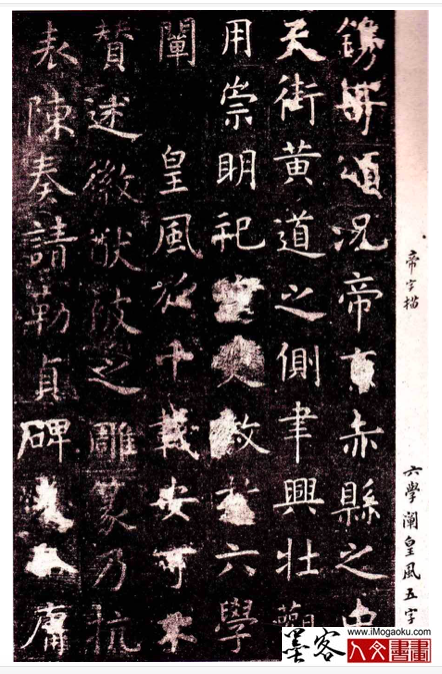 鐫頌況帝赤縣之中
天街黃道之側聿興壯觀
用崇明祀教六學
闡皇風於十載安可不
賛述徽猷被之雕篆乃抗
表陳奏請勒貞碑庸
帝字描
六學闡皇風五字
墨客
www.iMogaoku.com